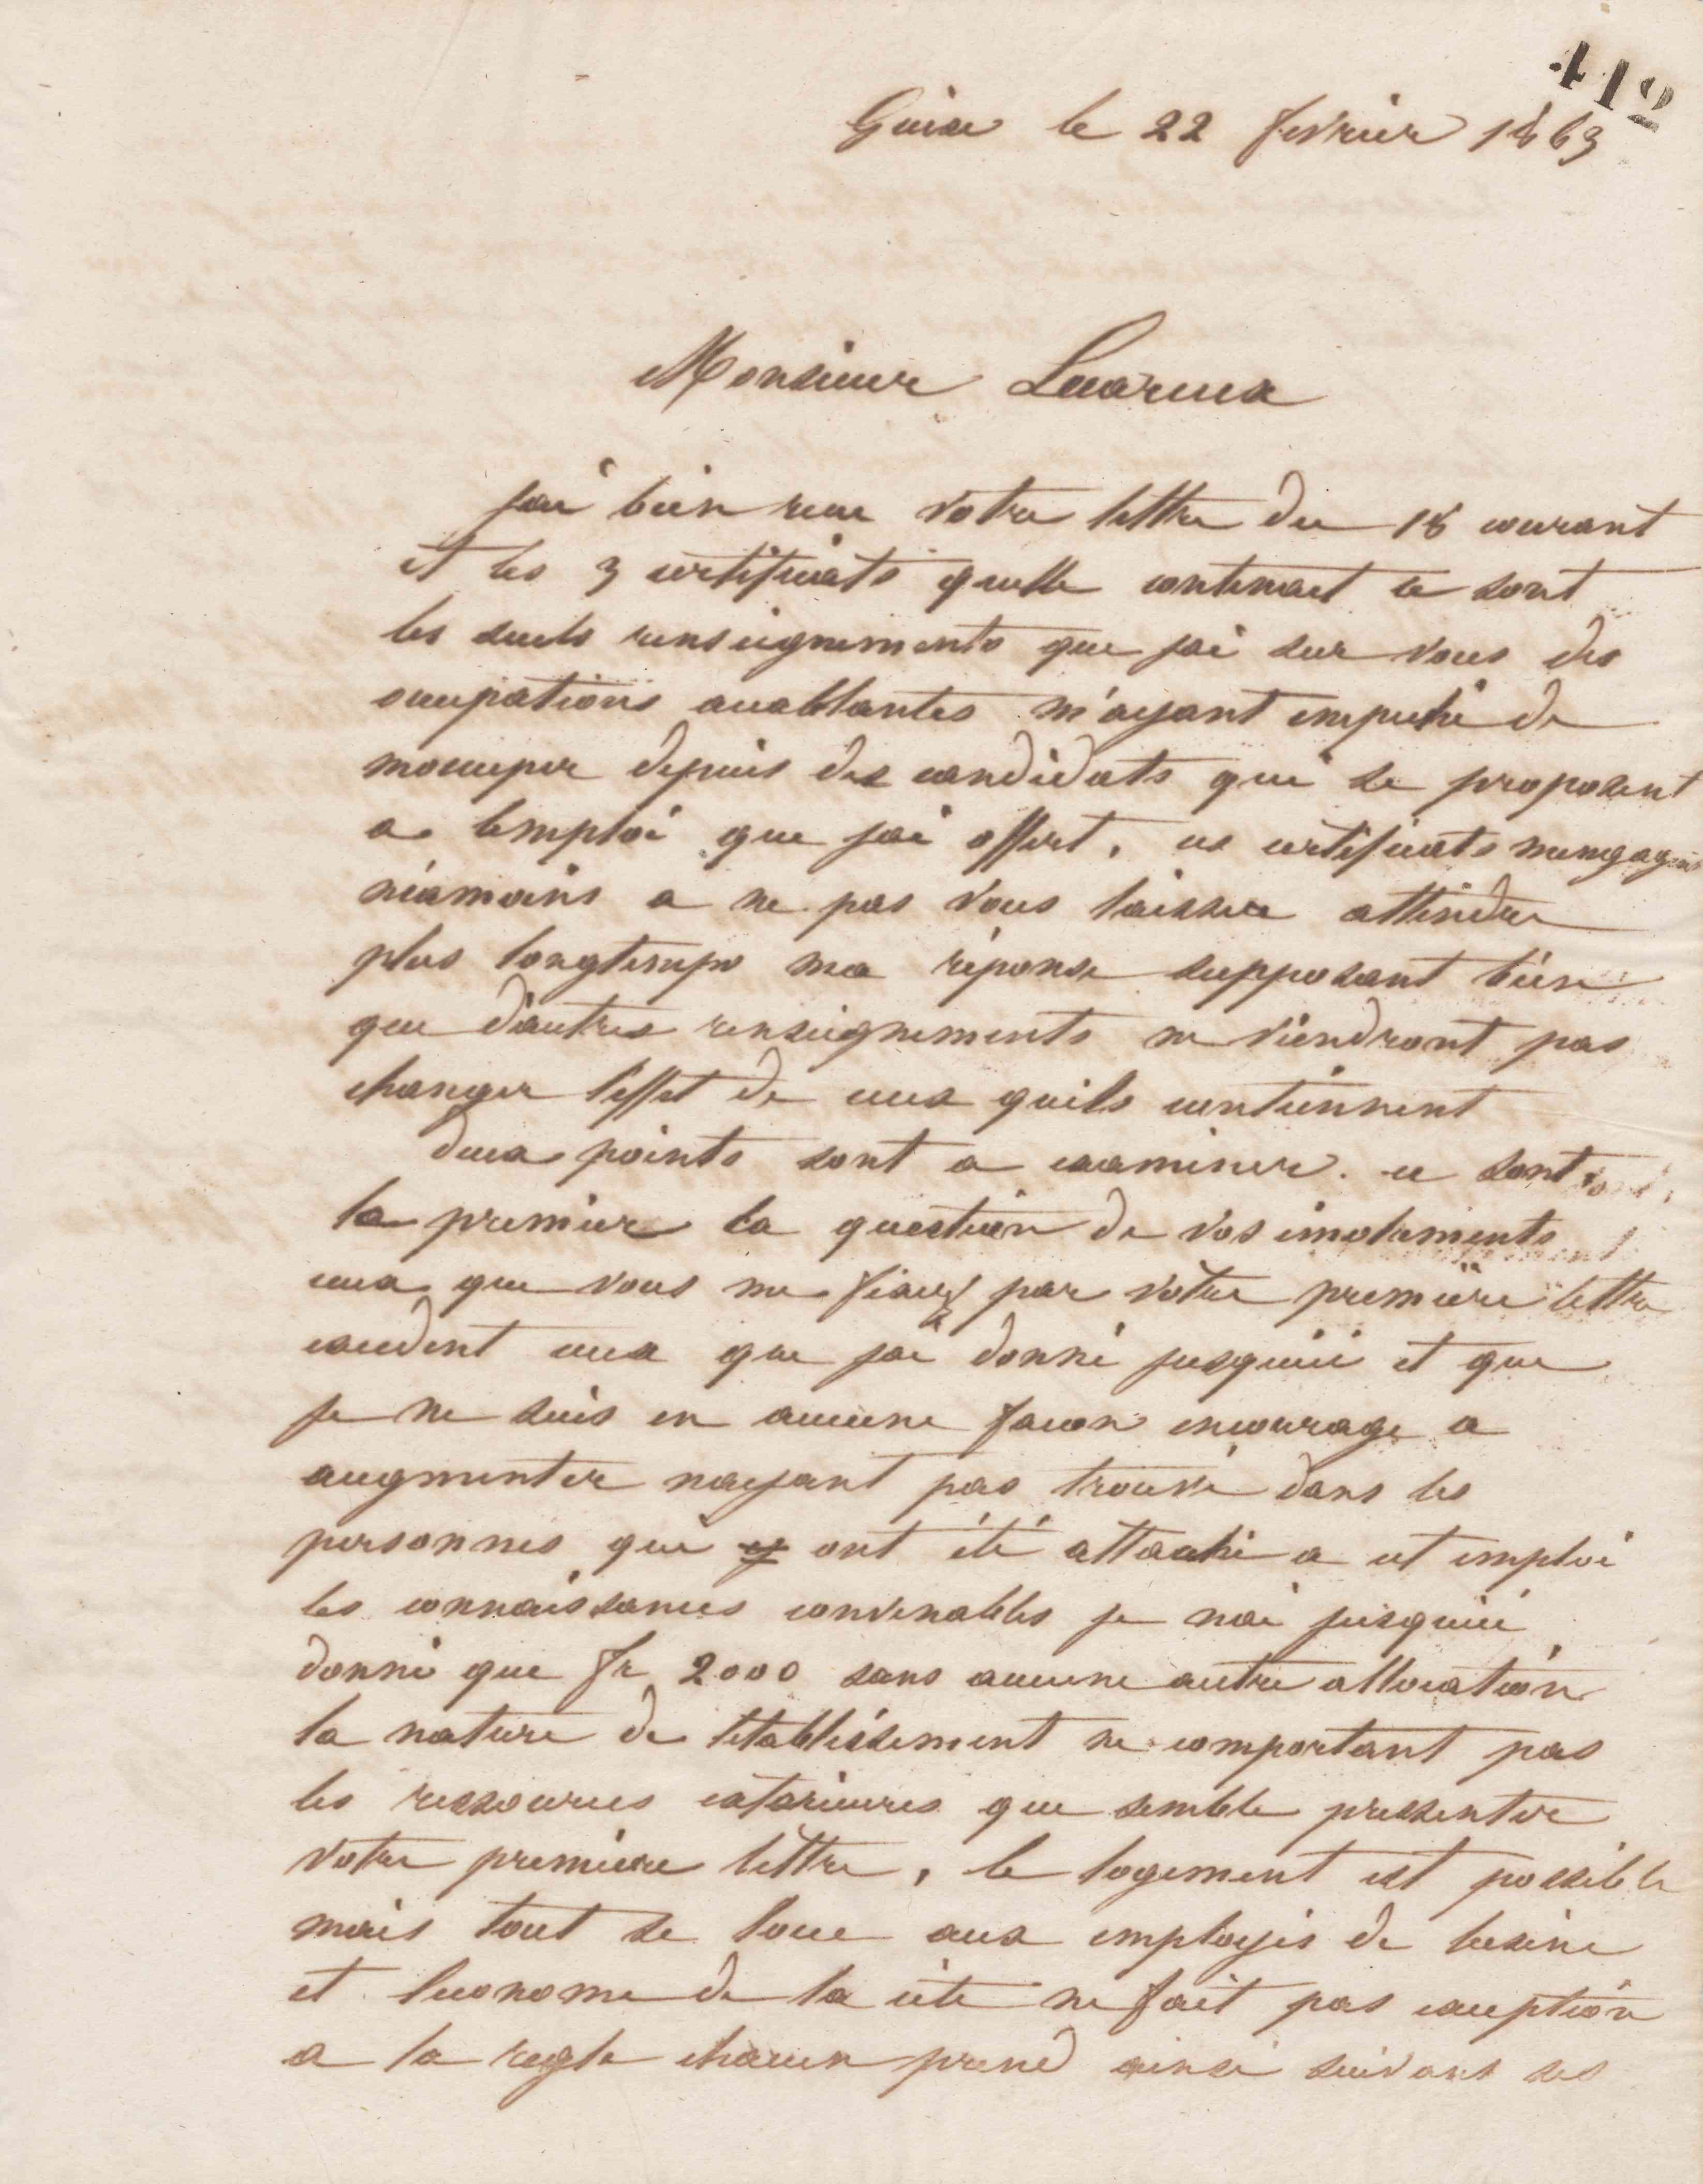 412
Guise le 22 fevrier 1863
Monsieur
jai bien recu votre lettre du 18 courant
et les 3 certificats quelle contenait ce sont
les seuls renseignements que jai sur vous des
occupations accablantes m'ayant empeché de
moccuper depuis des candidats qui se proposent
a lemploi que jai offert, ces certificats mengagent
néamoins a ne pas vous laisser attendre
plus longtemps ma réponse supposant bien
que d'autres renseignements ne viendront pas
changer l'effet de ceux quils contiennent
deux points sont a examiner. ce sont
la premiere la question de vos émoluments
ceux que vous me fixez par votre première lettre
excedent ceux que jai donné jusquici et que
je ne suis en aucune facon encouragé a
augmenter nayant pas trouvé dans les
personnes qui ont été attaché a cet emploi
les connaissances convenables je nai jusquici
donné que fr 2000 sans aucune autre allocation
la nature de létablissement ne comportant pas
les ressources exterieures que semble pressenter
votre premiere lettre, le logement est possible
mais tout se loue aux employés de lusine
et leconome de la cité ne fait pas exception
a la regle chacun prend ainsi suivant ses